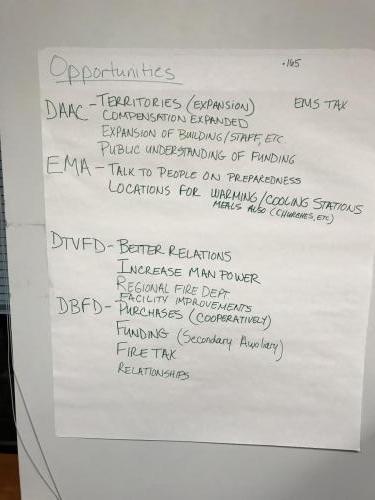 Opportunities
.165
DAAC - TERRITORIES (EXPANSION) EMS TAX
COMPENSATION EXPANDED
EXPANSION OF BUILDING/STAFF, ETC.
PUBLIC UNDERSTANDING OF FUNDING
EMA - TALK TO PEOPLE ON PREPAREDNESS
LOCATIONS FOR WARMING/COOLING STATIONS
MEALS ALSO (CHURCHES, ETC)
DTVFD - BETTER RELATIONS
INCREASE MAN POWER
REGIONAL FIRE DEPT
FACILITY IMPROVEMENTS
DBFD - PURCHASES (COOPERATIVELY)
FUNDING (Secondary Auxiliary)
FIRE TAX
RELATIONSHIPS